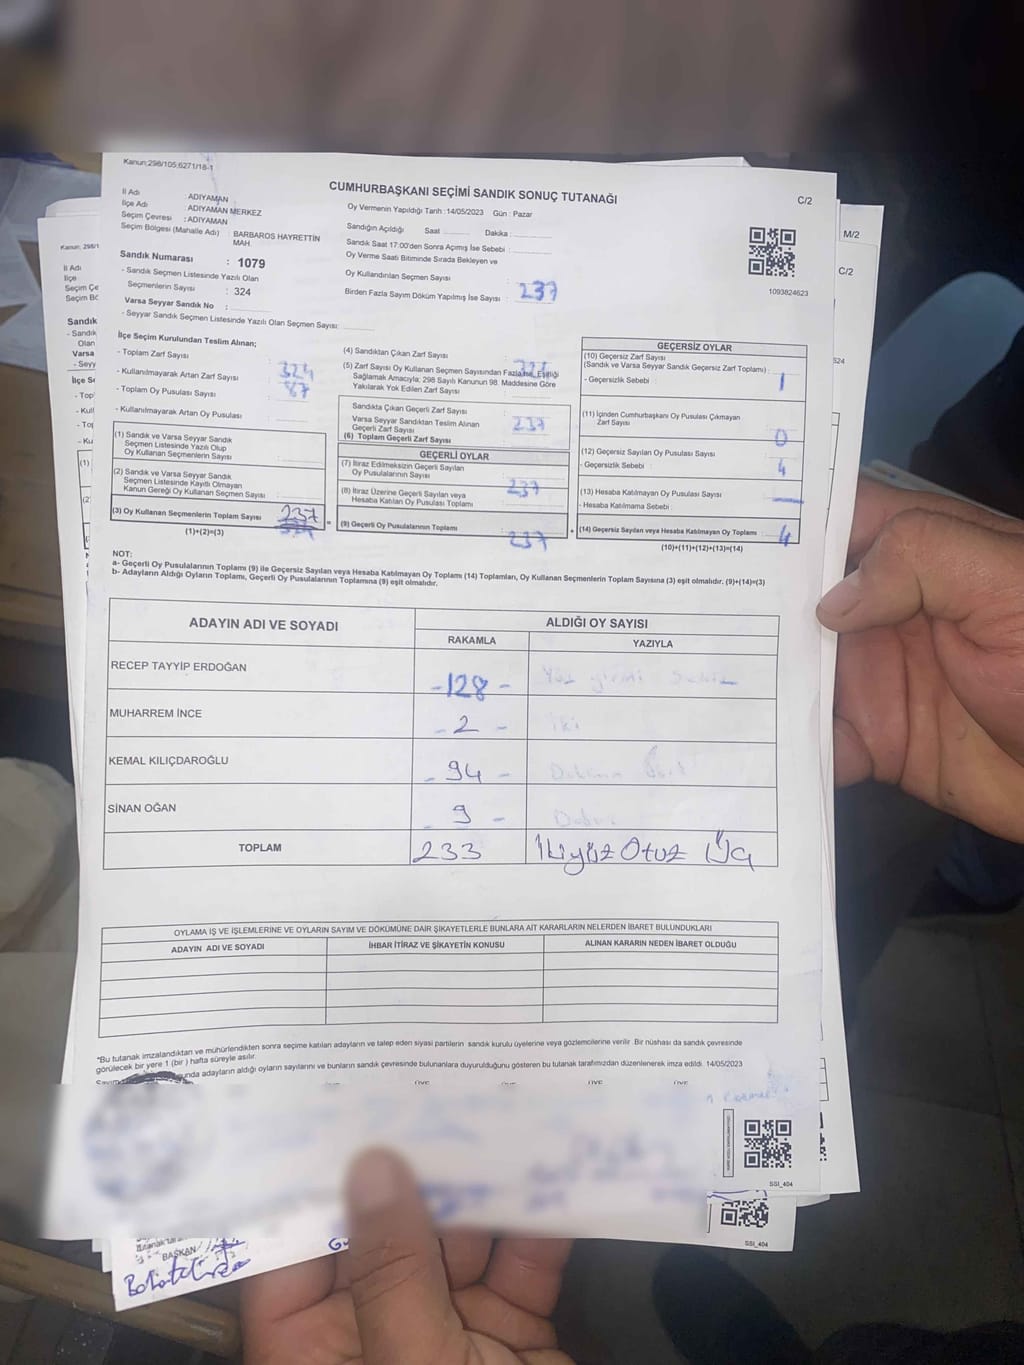 Kanun;298/105;6271/18-1
CUMHURBAŞKANI SEÇİMİ SANDIK SONUÇ TUTANAĞI
C/2
İl Adı : ADIYAMAN
İlçe Adı : ADIYAMAN MERKEZ
Seçim Çevresi : ADIYAMAN
Seçim Bölgesi (Mahalle Adı) : BARBAROS HAYRETTİN MAH.
Sandık Numarası : 1079
- Sandık Seçmen Listesinde Yazılı Olan
Seçmenlerin Sayısı : 324
Varsa Seyyar Sandık No :
- Seyyar Sandık Seçmen Listesinde Yazılı Olan Seçmen Sayısı:
Oy Vermenin Yapıldığı Tarih : 14/05/2023 Gün : Pazar
Sandığın Açıldığı Saat Dakika :
Sandık Saat 17:00'den Sonra Açımış İse Sebebi :
Oy Verme Saati Bitiminde Sırada Bekleyen ve
Oy Kullandırılan Seçmen Sayısı :
Birden Fazla Sayım Döküm Yapılmış İse Sayısı : 237
1093824623
M/2
C/2
İlçe Seçim Kurulundan Teslim Alınan;
- Toplam Zarf Sayısı
- Kullanılmayarak Artan Zarf Sayısı 324
- Toplam Oy Pusulası Sayısı 87
- Kullanılmayarak Artan Oy Pusulası
(1) Sandık ve Varsa Seyyar Sandık
Seçmen Listesinde Yazılı Olup
Oy Kullanan Seçmenlerin Sayısı
(2) Sandık ve Varsa Seyyar Sandık
Seçmen Listesinde Kayıtlı Olmayan
Kanun Gereği Oy Kullanan Seçmen Sayısı
(3) Oy Kullanan Seçmenlerin Toplam Sayısı 237
(1)+(2)=(3)
(4) Sandıktan Çıkan Zarf Sayısı
(5) Zarf Sayısı Oy Kullanan Seçmen Sayısından Fazla İse, Eşitliği
Sağlamak Amacıyla; 298 Sayılı Kanunun 98. Maddesine Göre
Yakılarak Yok Edilen Zarf Sayısı
Sandıkta Çıkan Geçerli Zarf Sayısı
Varsa Seyyar Sandıktan Teslim Alınan 237
Geçerli Zarf Sayısı
(6) Toplam Geçerli Zarf Sayısı
GEÇERLİ OYLAR
(7) İtiraz Edilmeksizin Geçerli Sayılan
Oy Pusulalarının Sayısı
237
(8) İtiraz Üzerine Geçerli Sayılan veya
Hesaba Katılan Oy Pusulası Toplamı
= (9) Geçerli Oy Pusulalarının Toplamı
237
GEÇERSİZ OYLAR
(10) Geçersiz Zarf Sayısı
(Sandık ve Varsa Seyyar Sandık Geçersiz Zarf Toplamı) :
- Geçersizlik Sebebi : 1
(11) İçinden Cumhurbaşkanı Oy Pusulası Çıkmayan
Zarf Sayısı
0
(12) Geçersiz Sayılan Oy Pusulası Sayısı
- Geçersizlik Sebebi : 4
(13) Hesaba Katılmayan Oy Pusulası Sayısı
- Hesaba Katılmama Sebebi
+ (14) Geçersiz Sayılan veya Hesaba Katılmayan Oy Toplamı 4
(10)+(11)+(12)+(13)=(14)
NOT:
a- Geçerli Oy Pusulalarının Toplamı (9) ile Geçersiz Sayılan veya Hesaba Katılmayan Oy Toplamı (14) Toplamları, Oy Kullanan Seçmenlerin Toplam Sayısına (3) eşit olmalıdır. (9)+(14)=(3)
b- Adayların Aldığı Oyların Toplamı, Geçerli Oy Pusulalarının Toplamına (9) eşit olmalıdır.
ADAYIN ADI VE SOYADI ALDIĞI OY SAYISI
RAKAMLA YAZIYLA
RECEP TAYYİP ERDOĞAN - 128 - Yüz yirmi Sekiz
MUHARREM İNCE - 2 - İki
KEMAL KILIÇDAROĞLU - 94 - Doksan Dört
SİNAN OĞAN - 9 - Dokuz
TOPLAM 233 İkiyüz Otuz Üç
OYLAMA İŞ VE İŞLEMLERİNE VE OYLARIN SAYIM VE DÖKÜMÜNE DAİR ŞİKAYETLERLE BUNLARA AİT KARARLARIN NELERDEN İBARET BULUNDUKLARI
ADAYIN ADI VE SOYADI İHBAR İTİRAZ VE ŞİKAYETİN KONUSU ALINAN KARARIN NEDEN İBARET OLDUĞU
*Bu tutanak imzalandıktan ve mühürlendikten sonra seçime katılan adayların ve talep eden siyasi partilerin sandık kurulu üyelerine veya gözlemcilerine verilir. Bir nüshası da sandık çevresinde
görülecek bir yere 1 (bir ) hafta süreyle asılır.
adayların aldığı oyların sayılarını ve bunların sandık çevresinde bulunanlara duyurulduğunu gösteren bu tutanak tarafımızdan düzenlenerek imza edildi. 14/05/2023
SSI_404
SSI_404
BAŞKAN